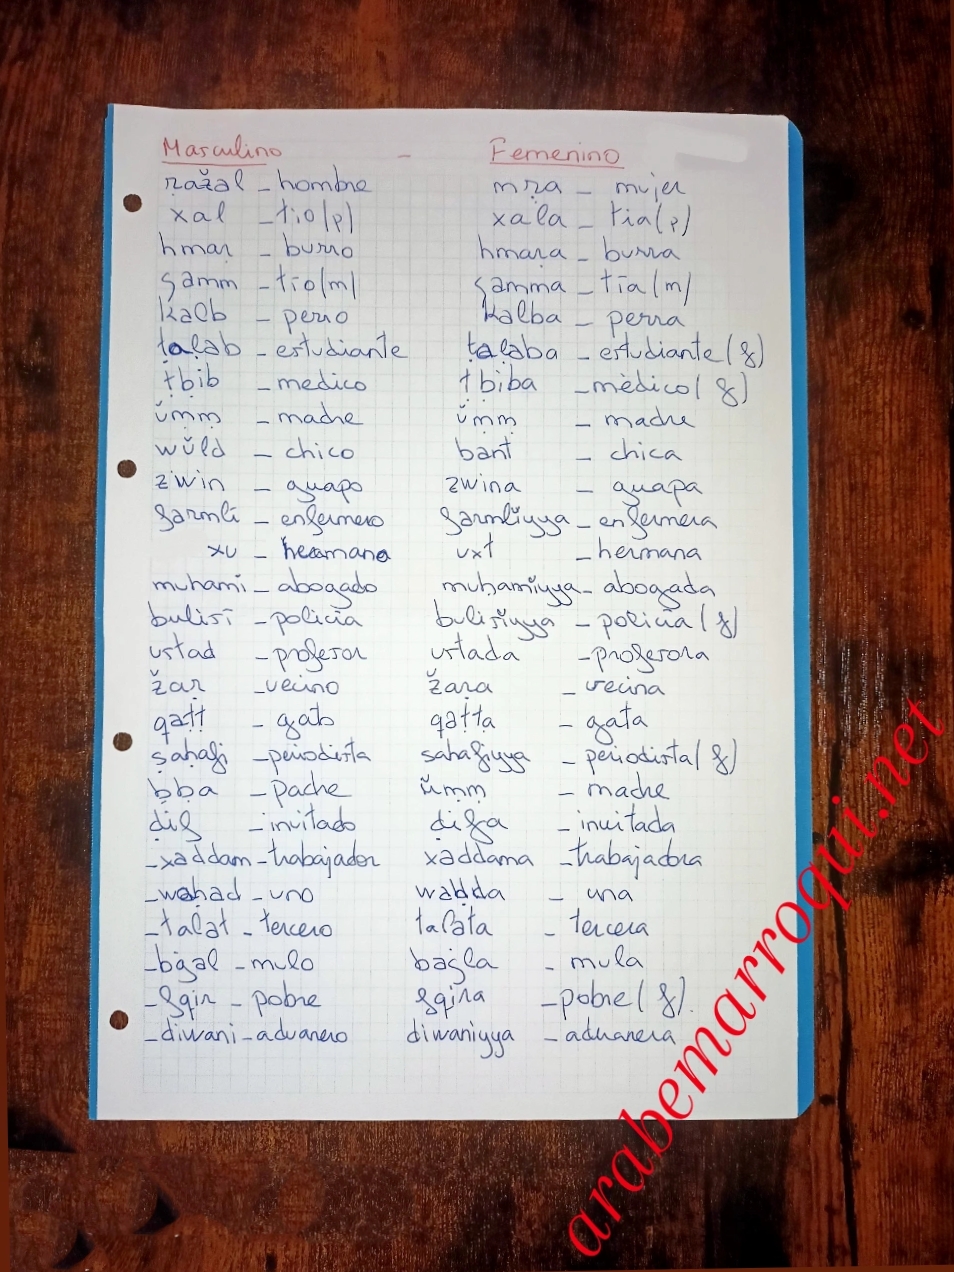 Masculino - Femenino
ṛažǝl - hombre mṛa - mujer
xal - tio(p) xala - tia(p)
ḥmaṛ - burro ḥmaṛa - burra
ʕamm - tío(m) ʕamma - tía(m)
kalb - perro kalba - perra
ṭalab - estudiante ṭalaba - estudiante (f)
ṭbib - medico ṭbiba - mèdico (f)
ŭṃṃ - madre ŭṃṃ - madre
wŭld - chico bant - chica
zwin - guapo zwina - guapa
farmli - enfermero farmliyya - enfermera
xu - hermano uxt - hermana
muḥami - abogado muḥamiyya - abogada
bulisi - policía bulisiyya - policía (f)
ustad - profesor ustada - profesora
žaṛ - vecino žaṛa - vecina
qaṭṭ - gato qaṭṭa - gata
ṣaḥafi - periodista saḥafiyya - periodista (f)
ḅḅa - padre ŭṃṃ - madre
ḍif - invitado ḍifa - invitada
- xaddam - trabajador xaddama - trabajadora
- waḥad - uno waḥda - una
- talat - tercero talata - tercera
- bġal - mulo baġla - mula
- fqir - pobre fqira - pobre (f).
- diwani - aduanero diwaniyya - aduanera
arabemarroqui.net